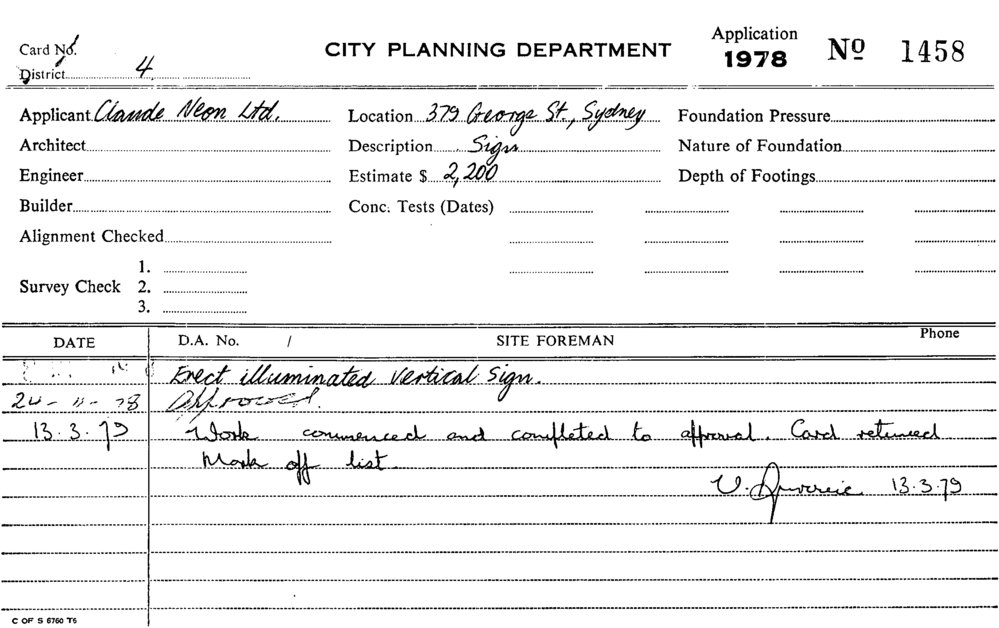 Card No. 1
District 4
CITY PLANNING DEPARTMENT
Application
1978
No 1458
Applicant Claude Neon Ltd.
Location 379 George St., Sydney
Foundation Pressure
Architect
Description Sign
Nature of Foundation
Engineer
Estimate $ 2,200
Depth of Footings
Builder
Conc. Tests (Dates)
Alignment Checked
Survey Check
1.
2.
3.
DATE
D.A. No. /
SITE FOREMAN
Phone
Erect illuminated vertical sign.
24-11-78 Approved.
13.3.79 Work commenced and completed to approval. Card returned
Mark off list.
13.3.79
C OF S 6760 T6